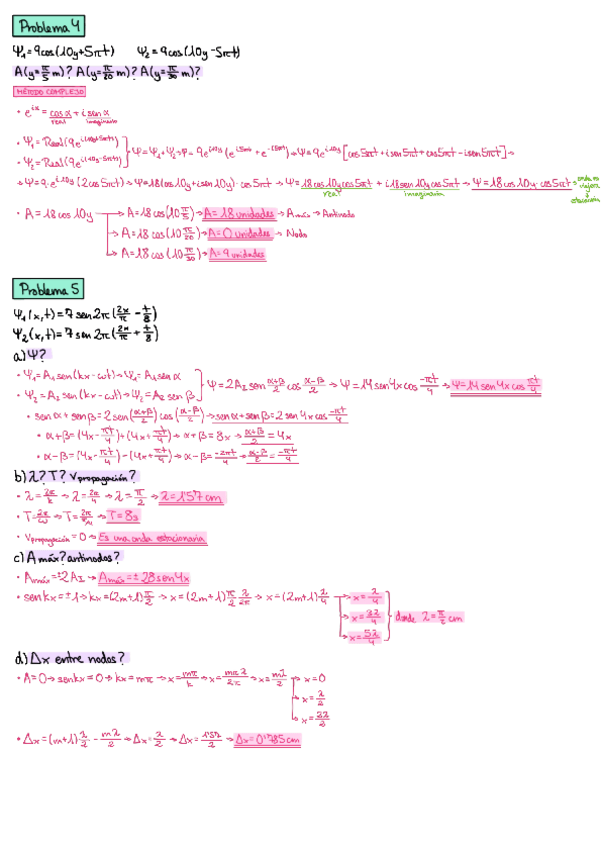 Problema 4
Ψ₁ = 9cos(10y+5πt)   Ψ₂ = 9cos(10y-5πt)
A(y=π/5 m)? A(y=π/20 m)? A(y=π/30 m)?
MÉTODO COMPLEJO
• e^{iα} = cosα + i senα
real   imaginario
• Ψ₁ = Real(9e^{i(10y+5πt)})
• Ψ₂ = Real(9e^{i(10y-5πt)})
Ψ = Ψ₁+Ψ₂ → Ψ = 9e^{i10y}(e^{i5πt} + e^{-i5πt}) → Ψ = 9e^{i10y}[cos5πt + i sen5πt + cos5πt - i sen5πt] →
→ Ψ = 9·e^{i10y}(2cos5πt) → Ψ = 18(cos10y + i sen10y)·cos5πt → Ψ = 18cos10y cos5πt + i 18sen10y cos5πt → Ψ = 18cos10y·cos5πt →
real   imaginaria
onda no viajera y estacionaria
• A = 18cos10y → A = 18cos(10 π/5) → A = 18 unidades → A máx → Antinodo
→ A = 18cos(10 π/20) → A = 0 unidades → Nodo
→ A = 18cos(10 π/30) → A = 9 unidades
Problema 5
Ψ₁(x,t) = 7sen2π(2x/π - t/8)
Ψ₂(x,t) = 7sen2π(2x/π + t/8)
a) Ψ?
• Ψ₁ = A₁sen(kx-ωt) → Ψ₁ = A₁senα
• Ψ₂ = A₂sen(kx-ωt) → Ψ₂ = A₂senβ
Ψ = 2A₂sen (α+β)/2 cos (α-β)/2 → Ψ = 14sen4x cos -πt/4 → Ψ = 14sen4x cos πt/4
• senα + senβ = 2sen((α+β)/2)cos((α-β)/2) → senα + senβ = 2sen4x cos -πt/4
• α+β = (4x - πt/4) + (4x + πt/4) → α+β = 8x → (α+β)/2 = 4x
• α-β = (4x - πt/4) - (4x + πt/4) → α-β = -2πt/4 → (α-β)/2 = -πt/4
b) λ? T? v propagación?
• λ = 2π/k → λ = 2π/4 → λ = π/2 → λ = 1'57cm
• T = 2π/ω → T = 2π/(π/4) → T = 8s
• v propagación = 0 → Es una onda estacionaria
c) A máx? antinodos?
• A máx = ±2A₂ → A máx = ±28sen4x
• senkx = ±1 → kx = (2m+1)π/2 → x = (2m+1) π/2 λ/2π → x = (2m+1)λ/4 → x = λ/4
→ x = 3λ/4
→ x = 5λ/4
donde λ = π/2 cm
d) Δx entre nodos?
• A = 0 → senkx = 0 → kx = mπ → x = mπ/k → x = mπλ/2π → x = mλ/2 → x = 0
→ x = λ/2
→ x = 2λ/2
• Δx = (m+1)λ/2 - mλ/2 → Δx = λ/2 → Δx = 1'57/2 → Δx = 0'785cm